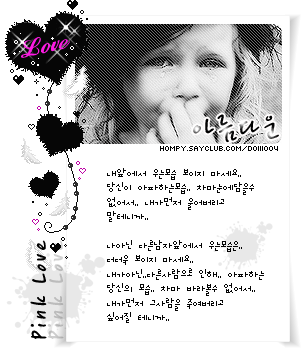 Love
아름다운
HOMPY.SAYCLUB.COM/DOIIIOO4
내앞에서 우는모습 보이지 마세요..
당신이 아파하는모습.. 차마눈에담을수
없어서.. 내가먼저 울어버리고
말테니까..
나아닌 다른남자앞에서 우는모습은..
더더욱 보이지 마세요..
내가아닌..다른사람으로 인해.. 아파하는
당신의 모습.. 차마 바라볼수 없어서..
내가먼저 그사람을 죽여버리고
싶어질 테니까..
Pink Love
Pink Love